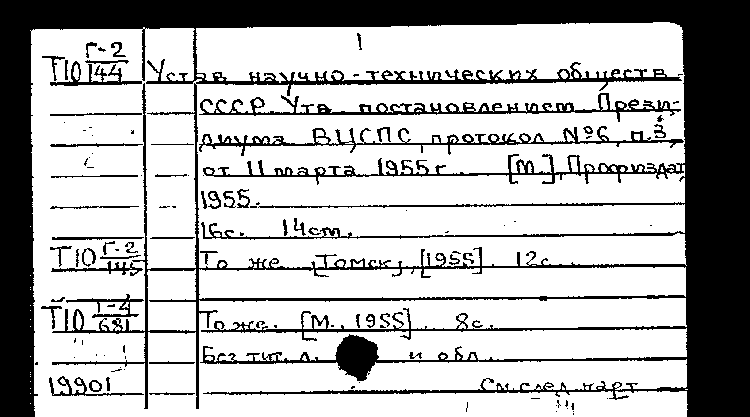 1
Т10 Г-2/144 Устав научно-технических обществ
СССР. Утв. постановлением Прези-
диума ВЦСПС, протокол №6, п.3,
от 11 марта 1955г. [М.], Профиздат,
1955.
16с. 14см.
Т10 Г-2/145 То же. [Томск], [1955]. 12с.
Т10 Г-4/681 То же. [М., 1955]. 8с.
Без тит. л. и обл.
19901 См.след.карт.